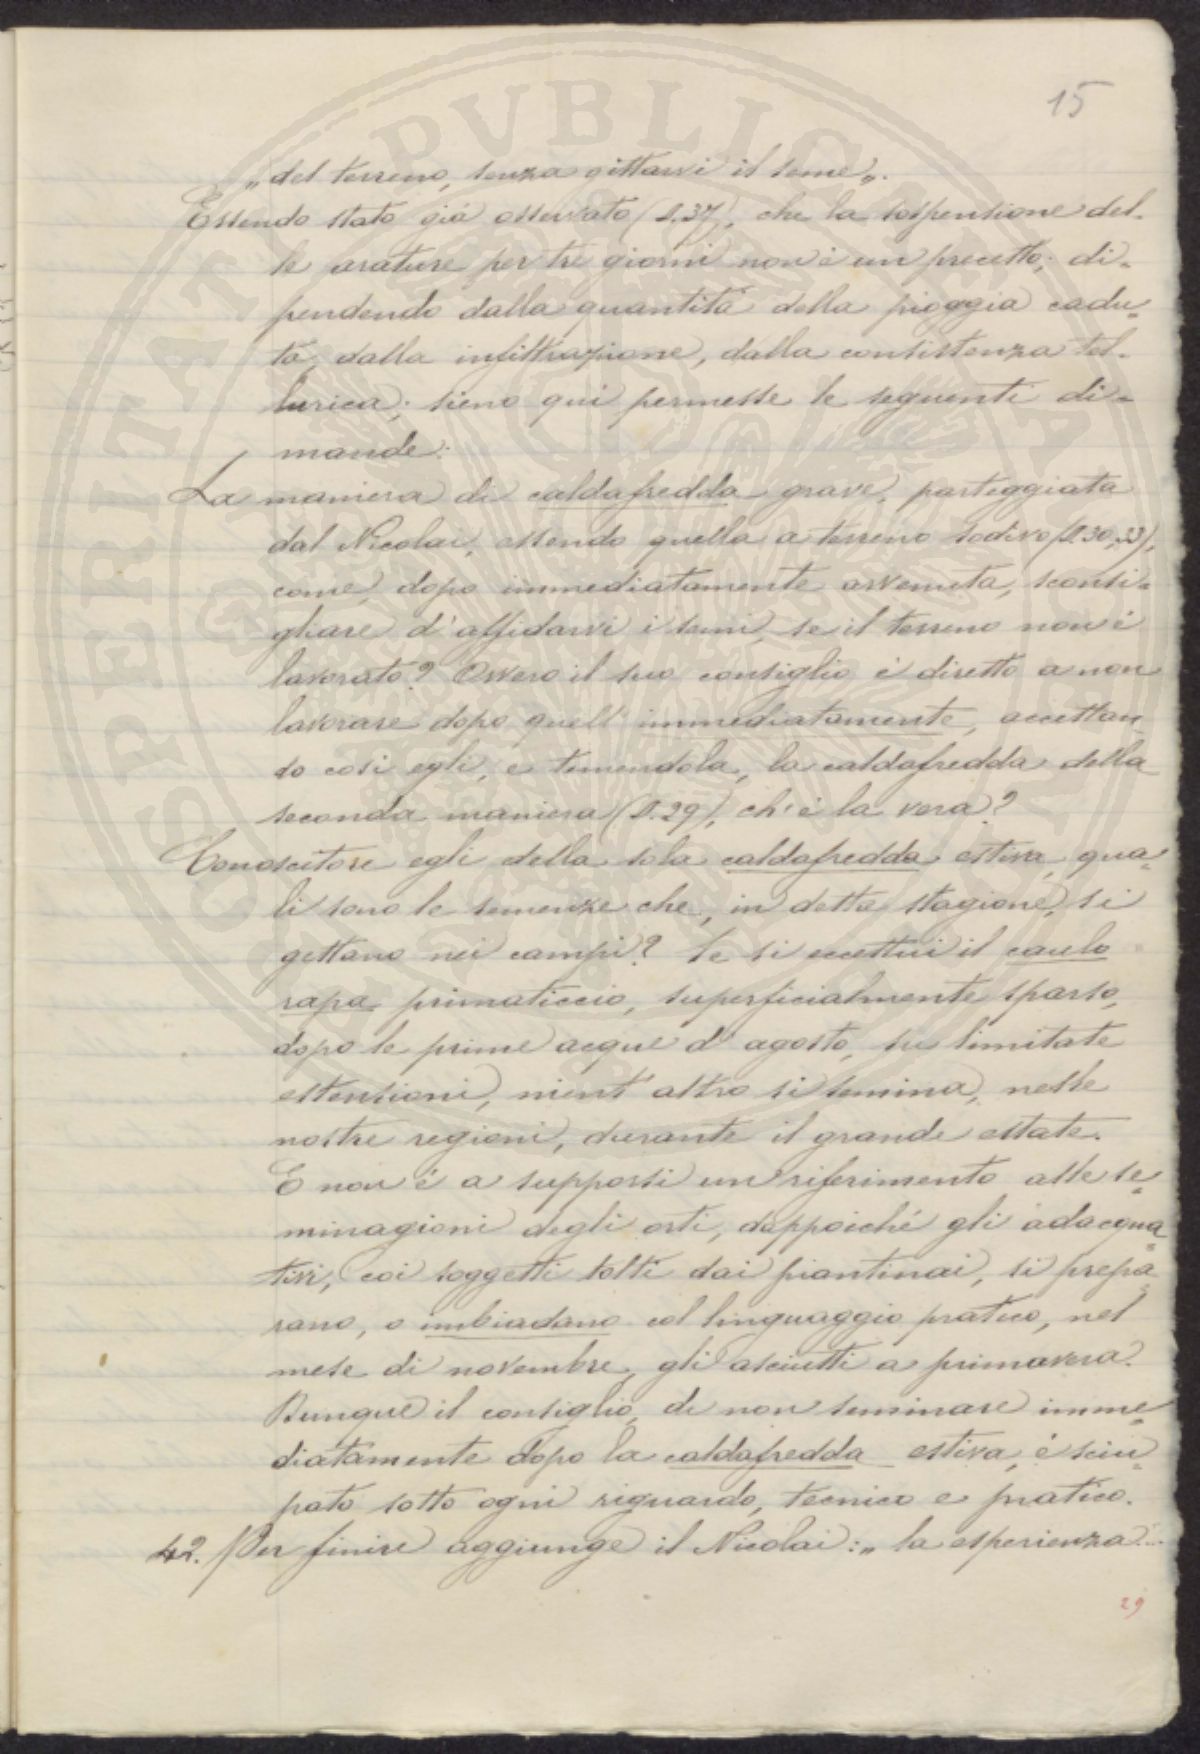 15
„del terreno, senza gittarvi il seme„.
Essendo stato già osservato (§.37), che la sospensione del-
le arature per tre giorni non è un precetto; di-
pendendo dalla quantità della pioggia cadu-
ta, dalla infiltrazione, dalla consistenza tel-
lurica; sieno qui permesse le seguenti di-
mande:
La maniera di caldafredda grave, parteggiata
dal Nicolai, essendo quella a terreno sodivo (§.30,33),
come, dopo immediatamente avvenuta, sconsi-
gliare d'affidarvi i semi, se il terreno non è
lavorato? Ovvero il suo consiglio è diretto a non
lavorare dopo quell'immediatamente, accettan-
do così egli, e temendola, la caldafredda della
seconda maniera (§.29), ch'è la vera?
Conoscitore egli della sola caldafredda estiva, qua-
li sono le semenze che, in detta stagione, si
gettano nei campi? Se si eccettui il caulo
rapa primaticcio, superficialmente sparso,
dopo le prime acque d'agosto, su limitate
estensioni, nient'altro si semina, nelle
nostre regioni, durante il grande estate.
E non è a supporsi un riferimento alle se-
minagioni degli orti, dappoiché gli adacqua-
tivi, coi soggetti tolti dai piantinai, si prepa-
rano, o imbiadano col linguaggio pratico, nel
mese di novembre, gli asciutti a primavera.
Dunque il consiglio, di non seminare imme-
diatamente dopo la caldafredda estiva, è sciu-
pato sotto ogni riguardo, tecnico e pratico.
42. Per finire aggiunge il Nicolai: „la esperienza...
29
PVBLICAE
PROSPERITATI